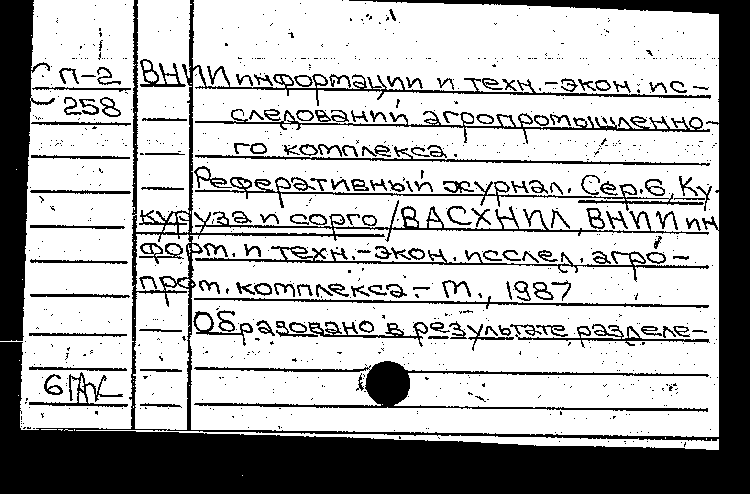 П-2 ВНИИ информации и техн.-экон. ис-
258 следований агропромышленно-
го комплекса.
Реферативный журнал. Сер.6, Ку-
куруза и сорго / ВАСХНИЛ, ВНИИ ин
форм. и техн.-экон. исслед. агро-
пром. комплекса.- М., 1987
Образовано в результате разделе-